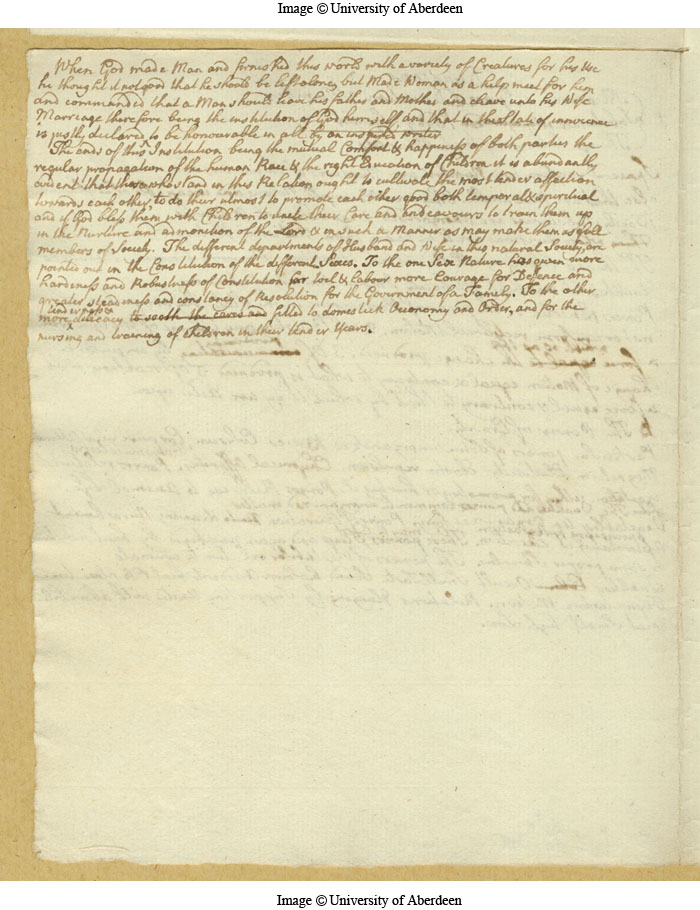 Image © University of Aberdeen
When God made Man and furnished this world with a variety of Creatures for his Use
he thought it not good that he should be left alone, but Made Woman as a help meet for him
and commanded that a Man should leave his father and Mother and cleave unto his Wife
Marriage therefore being the institution of God himself and that in the State of innocence
is justly declared to be honourable in all by an inspired writer
The ends of this Institution being the mutual Comfort & happiness of both parties the
regular propagation of the human Race & the right Education of Children it is abundantly
evident that those who stand in this Relation ought to cultivate the most tender affection
towards each other, to do their utmost to promote each others good both temporal & spiritual
and if God bless them with Children to their Care and endeavours to train them up
in the Nurture and admonition of the Lord & in such a Manner as may make them usefull
members of Society. The different departments of Husband and Wife in this natural Society, are
pointed out in the Constitution of the different Sexes. To the one Sex Nature has given more
hardiness and Robustness of Constitution for toil & labour more Courage for Defence and
greater steadiness and constancy of Resolution for the Government of a Family. To the other
tenderness &
more delicacy to sooth the cares and fitted to domestick Oeconomy and Order, and for the
nursing and training of Children in their tender Years.
Image © University of Aberdeen